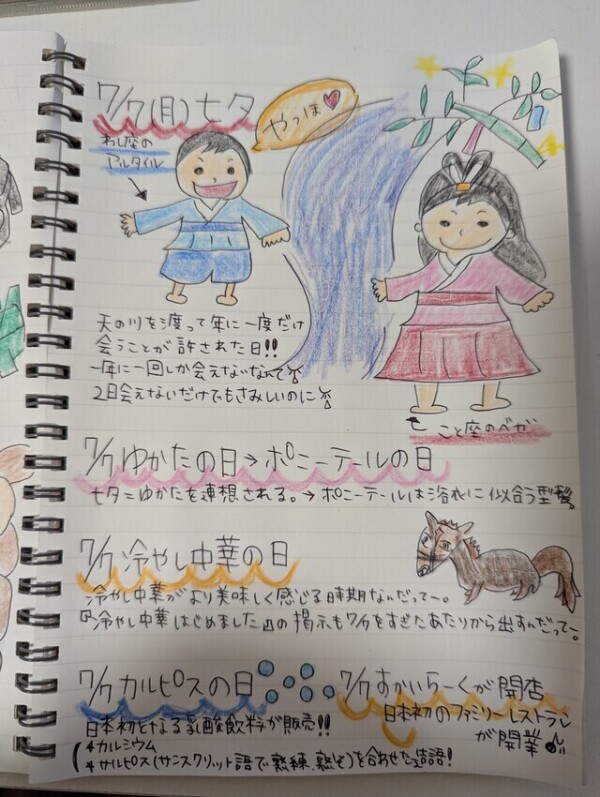 7/7(月)七夕
やっほー
わし座の
アルタイル
天の川を渡って年に一度だけ
会うことが許された日!!
一年に一回しか会えないなんて
2日会えないだけでもさみしいのに
こと座のベガ
7/7 ゆかたの日→ポニーテールの日
七夕=ゆかたを連想される。→ポニーテールは浴衣に似合う髪型。
7/7 冷やし中華の日
冷やし中華がより美味しく感じる時期なんだってー。
『冷やし中華はじめました』の掲示も7/7をすぎたあたりから出すんだってー。
7/7 カルピスの日
日本初となる乳酸飲料が販売!!
(*カルシウム
*サルピス(サンスクリット語で熟練、熟そ)を合わせた造語!
7/7 すかいらーくが開店
日本初のファミリーレストラン
が開業♪